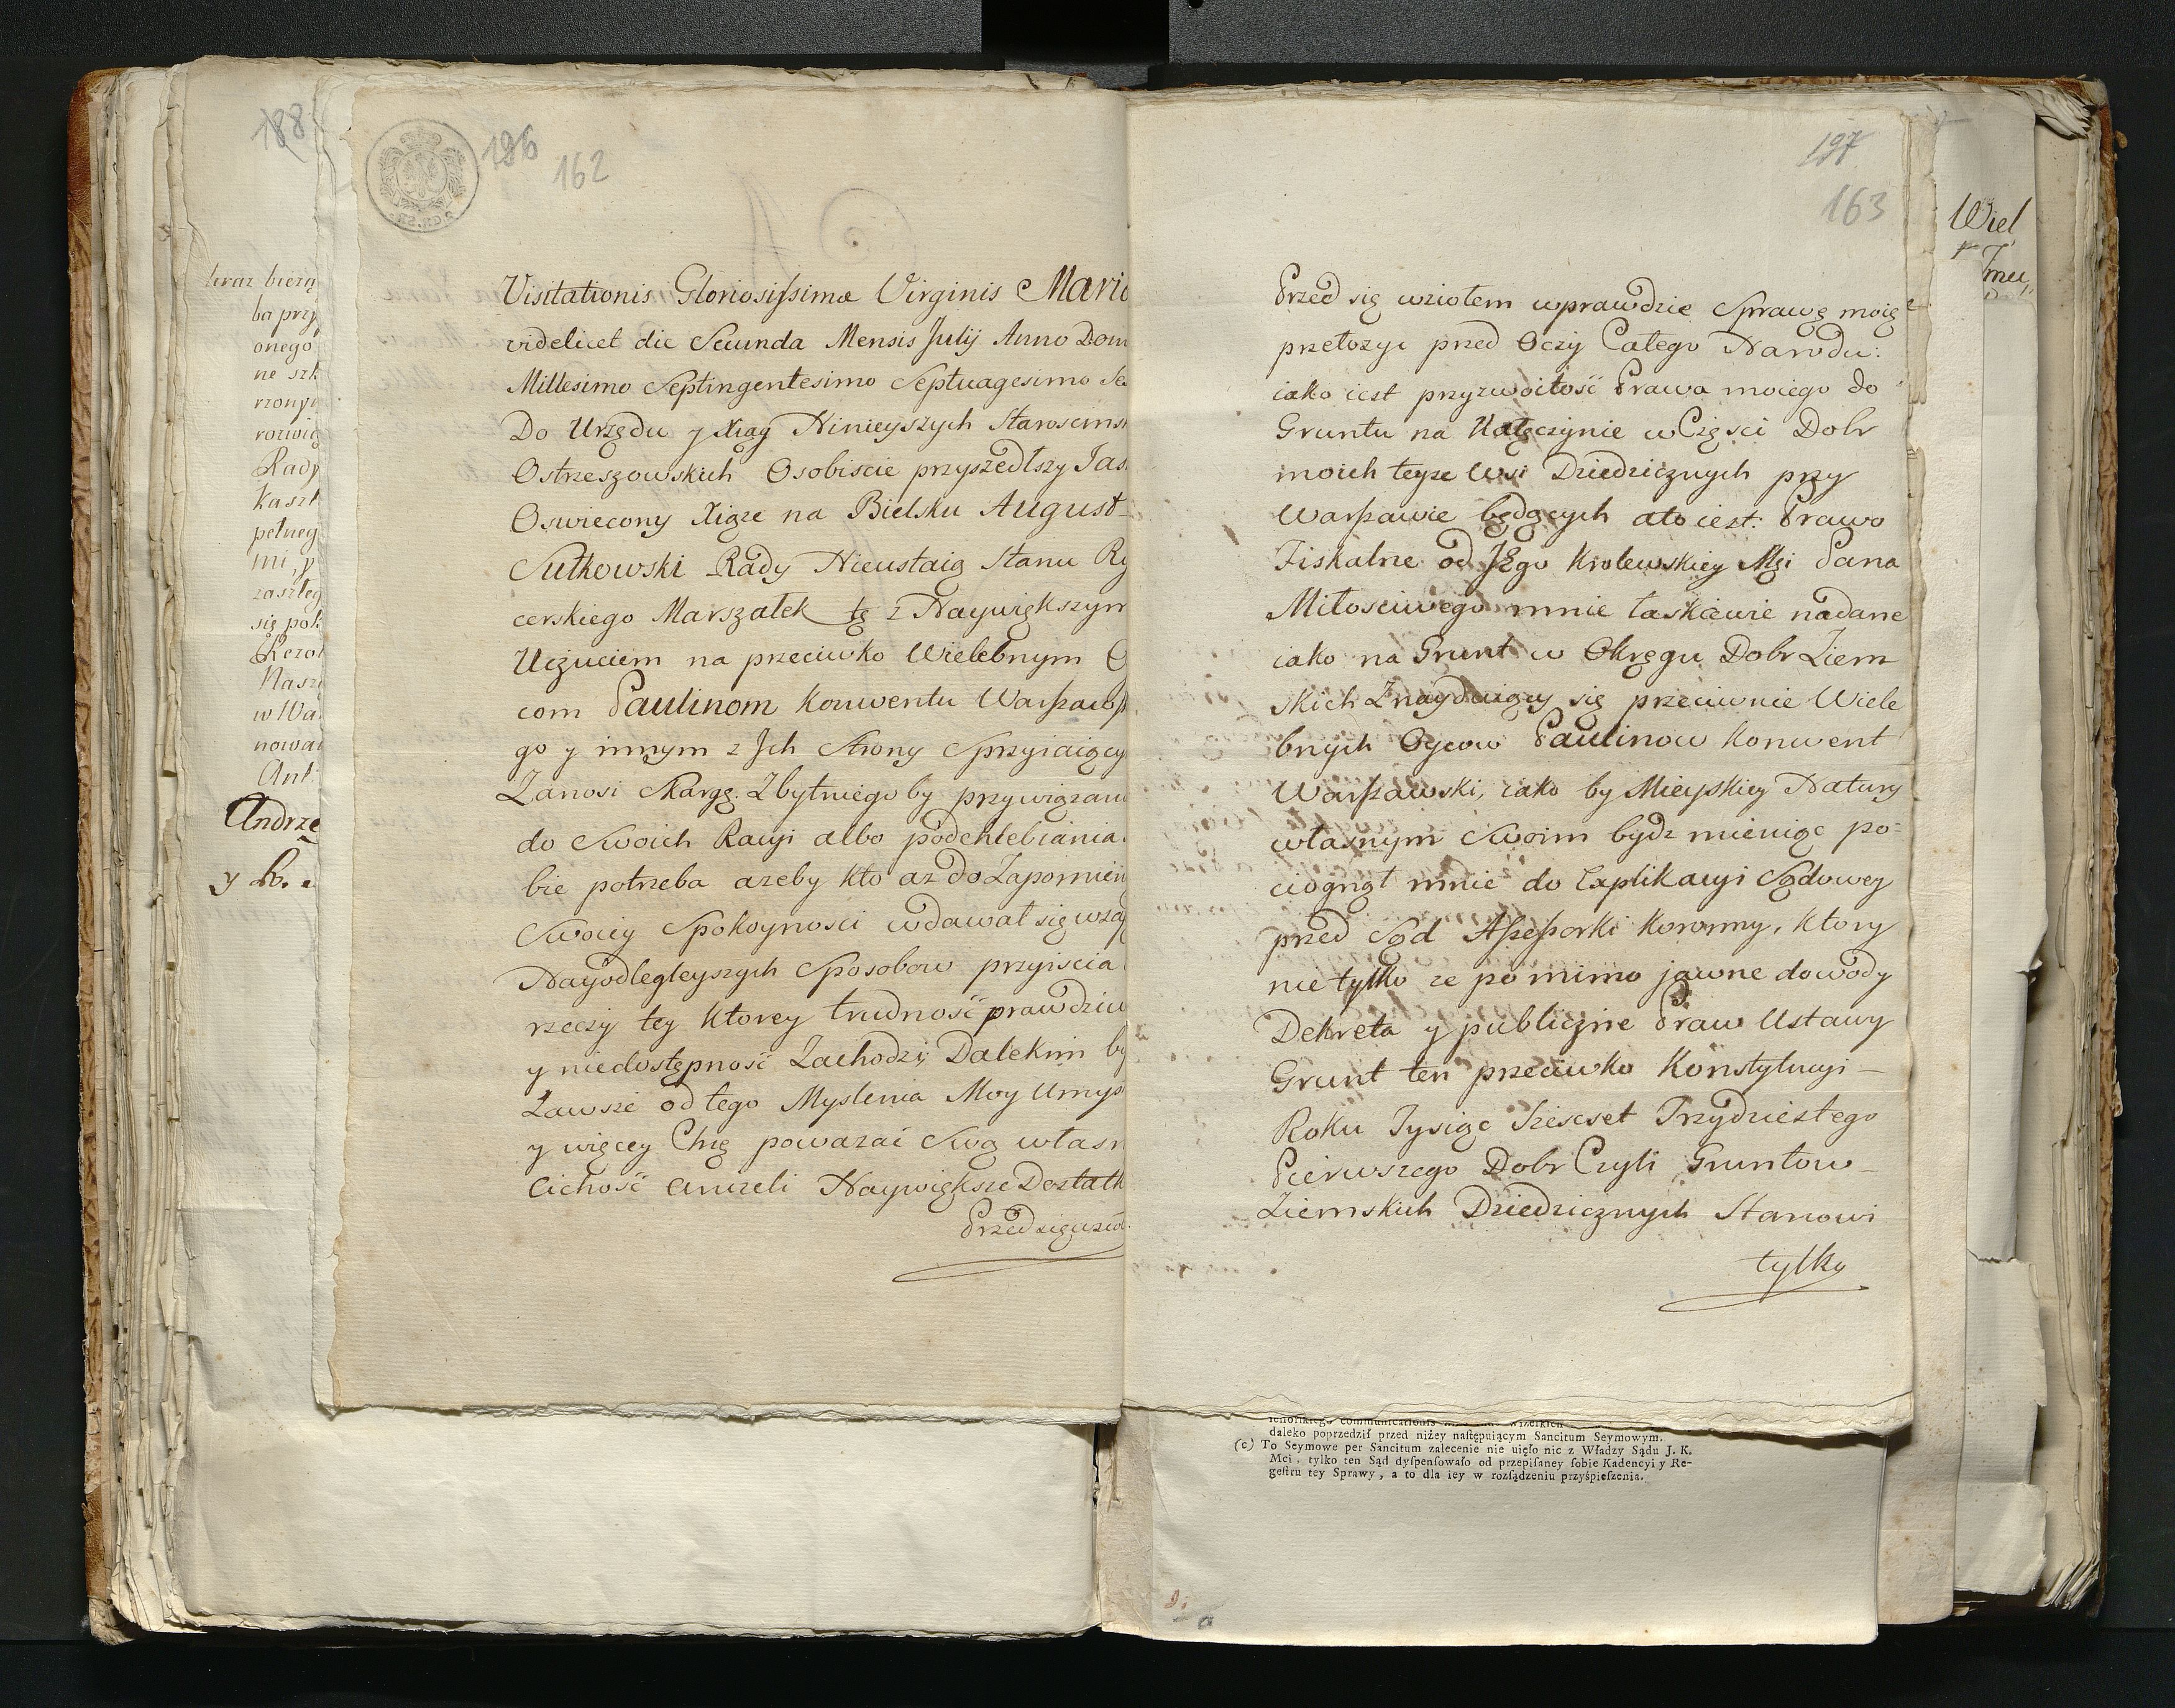 188
teraz bieżą
ba przy
onego
ne szk
rzony
rozwią
Rady
Kaszt
pełneg
mi, y
zaszłeg
się pok
Rezol
Nasze
w Wa
nowa
Ant
Andrze
y Lo.
186
162
Visitationis Gloriosissimæ Virginis Mari
videlicet die Secunda Mensis Julij Anno Dom
Millesimo Septingentesimo Septuagesimo Se
Do Urzędu y Xiąg Ninieyszych Staroscins
Ostrzeszowskich Osobiscie przyszedłszy Jas
Oswiecony Xiąże na Bielsku August
Sułkowski Rady Nieustaią Stanu Ry
cerskiego Marszałek tę z Naywiększym
Uczuciem na przeciwko Wielebnym O
com Paulinom Konwentu Warszaws
go y innym z Jch Strony Sprzyiaiący
Zanosi Skargę. Zbytniego by przywiązani
do Swoich Racyi albo podchlebiania
bie potrzeba azeby kto az do Zapomnien
Swoiey Spokoynosci wdawał się wza
Nayodlegleyszych Sposobow przyiscia
rzeczy tey ktorey trudność prawdziw
y niedostępność Zachodzi; Dalekim by
Zawsze od tego Myslenia Moy Umys
y więcey Chcę poważać Swą włas
Cichość Aniżeli Naywiększe Dostatk
Przedsięwzioł
197
163
Przed się wziołem wprawdzie Sprawę moię
przełożyć przed Oczy Całego Narodu:
iako iest przyzwoitość Prawa moiego do
Gruntu na Kałęczynie w Częsci Dobr
moich teyże Wsi Dziedzicznych przy
Warszawie będących ato iest: Prawo
Fiskalne od JEgo Krolewskiey Mci Pana
Miłosciwego mnie łaskawie nadane
iako na Grunt w Okręgu Dobr Ziem
skich Znayduiący się przeciwnie Wiele
bnych Oycow Paulinow Konwent
Warszawski, iako by Mieyskiey Natury
własnym Swoim bydz mieniąc po=
ciągnął mnie do Explikacyi Sądowey
przed Sąd Assessorki Koronny, Ktory
nie tylko ze po mimo jawne dowody
Dekreta y publiczne Praw Ustawy
Grunt ten przeciwko Konstytucyi –
Roku Tysiąc Szescset Trzydziestego
Pierwszego Dobr Czyli Gruntow –
Ziemskich Dziedzicznych Stanowi
tylko
daleko poprzedził przed niżey następuiącym Sancitum Seymowym.
(c) To Seymowe per Sancitum zalecenie nie uięło nic z Władzy Sądu J. K.
Mci, tylko ten Sąd dyspensowało od przepisaney sobie Kadencyi y Re-
gestru tey Sprawy, a to dla iey w rozsądzeniu przyśpieszenia.
Wiel
Jmu